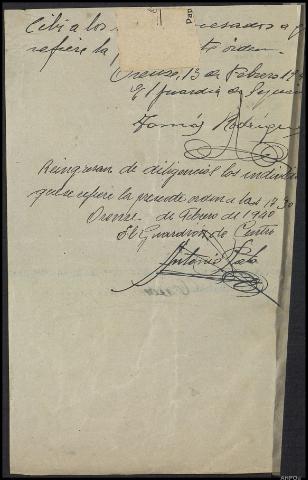 Cibí a los esados a q
refiere la to órden.
Orense, 13 de Febrero 194
El guardia de
Tomás Rodrigue
Reingresan de diligencias los individ
que se refiere la presente orden a las 17,30
Orense de Febrero de 1940
El Guardia de Centro
Antonio
Pap
AHPOu